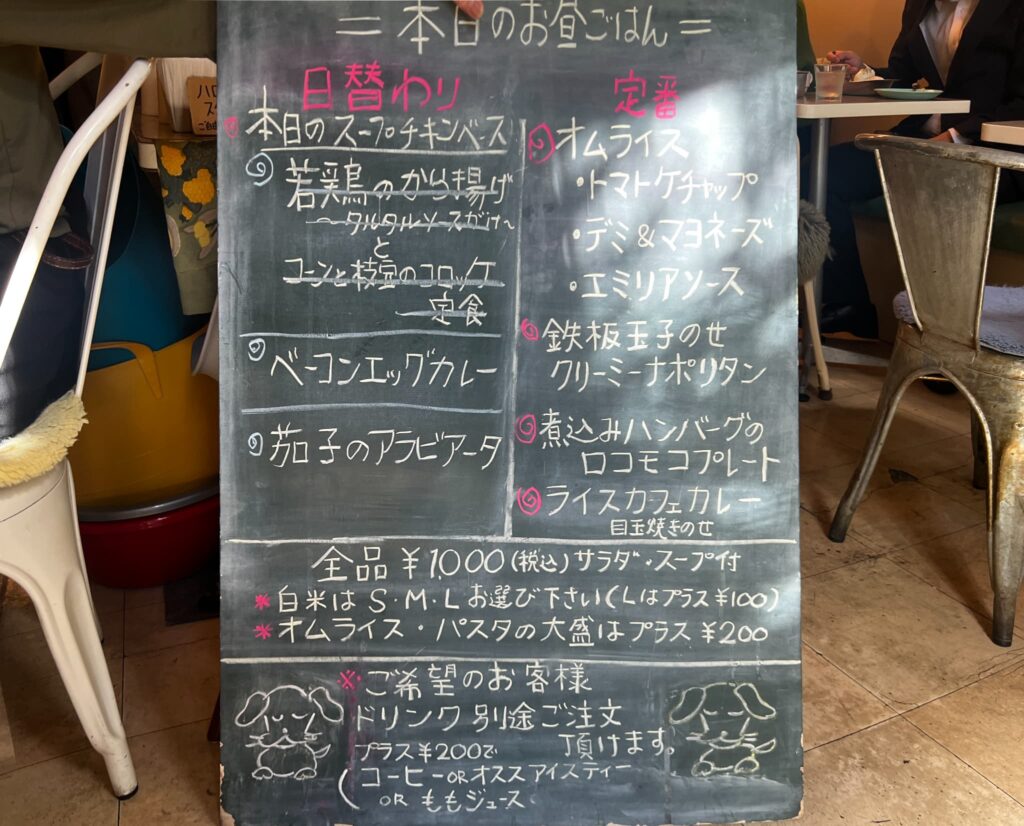 ＝本日のお昼ごはん＝
日替わり
本日のスープチキンベース
若鶏のから揚げ
〜タルタルソースがけ〜
と
コーンと枝豆のコロッケ
定食
ベーコンエッグカレー
茄子のアラビアータ
定番
オムライス
・トマトケチャップ
・デミ&マヨネーズ
・エミリアソース
鉄板玉子のせ
クリーミーナポリタン
煮込みハンバーグの
ロコモコプレート
ライスカフェカレー
目玉焼きのせ
全品¥1,000(税込)サラダ・スープ付
*白米はS・M・Lお選び下さい(Lはプラス¥100)
*オムライス・パスタの大盛はプラス¥200
※ご希望のお客様
ドリンク別途ご注文
頂けます。
プラス¥200で
(コーヒーORオススアイスティー
ORももジュース